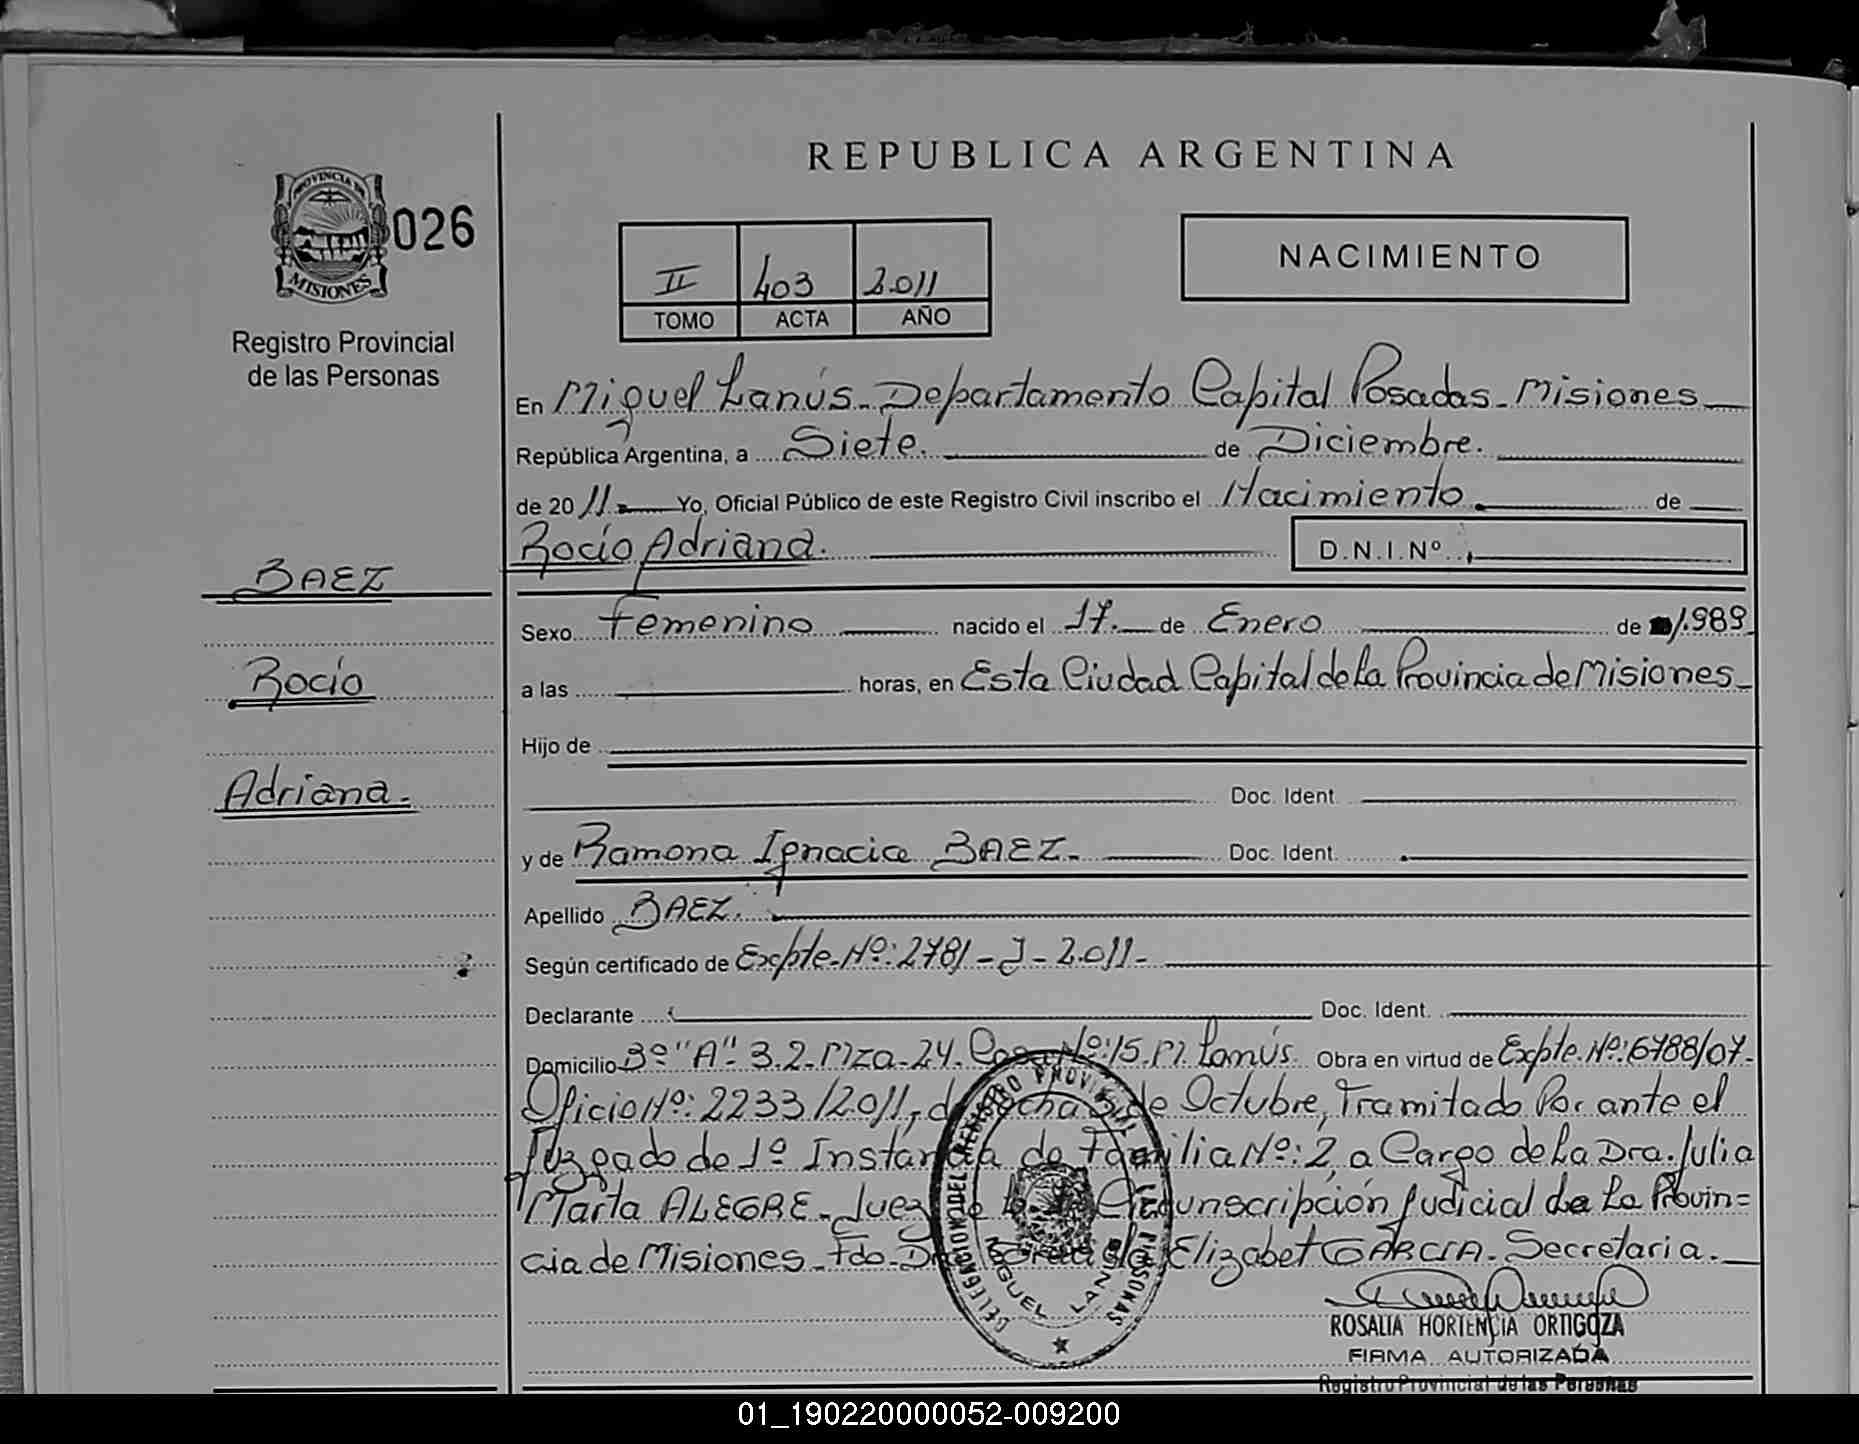 REPUBLICA ARGENTINA
PROVINCIA DE
MISIONES
026
II 403 2.011
TOMO ACTA AÑO
NACIMIENTO
Registro Provincial
de las Personas
En Miguel Lanús - Departamento Capital Posadas - Misiones
República Argentina, a Siete. de Diciembre.
de 20 11.- Yo, Oficial Público de este Registro Civil inscribo el Nacimiento. de
Rocío Adriana. D.N.I.Nº
BAEZ
Sexo Femenino nacido el 17. de Enero de 1.989
Rocío
a las horas, en Esta Ciudad Capital de La Provincia de Misiones
Hijo de
Adriana.-
Doc. Ident.
y de Ramona Ignacia BAEZ. Doc. Ident.
Apellido BAEZ.
Según certificado de Expte. Nº: 2781 - J - 2.011-
Declarante Doc. Ident.
Domicilio Bº "A" - 3.2. Mza. 24. Casa Nº: 15. M. Lanús. Obra en virtud de Expte. Nº: 6788/07.
Oficio Nº: 2233/2011, de fecha de Octubre, Tramitado Por ante el
Juzgado de 1º Instancia de Familia Nº: 2, a Cargo de La Dra. Julia
Marta ALEGRE - Juez de la Circunscripción Judicial de La Provin=
cia de Misiones - Fdo. Elizabet GARCIA - Secretaria.
DELEGACION DEL REGISTRO PROVINCIAL DE LAS PERSONAS
MIGUEL LANUS
ROSALIA HORTENCIA ORTIGOZA
FIRMA AUTORIZADA
Registro Provincial de las Personas
01_190220000052-009200